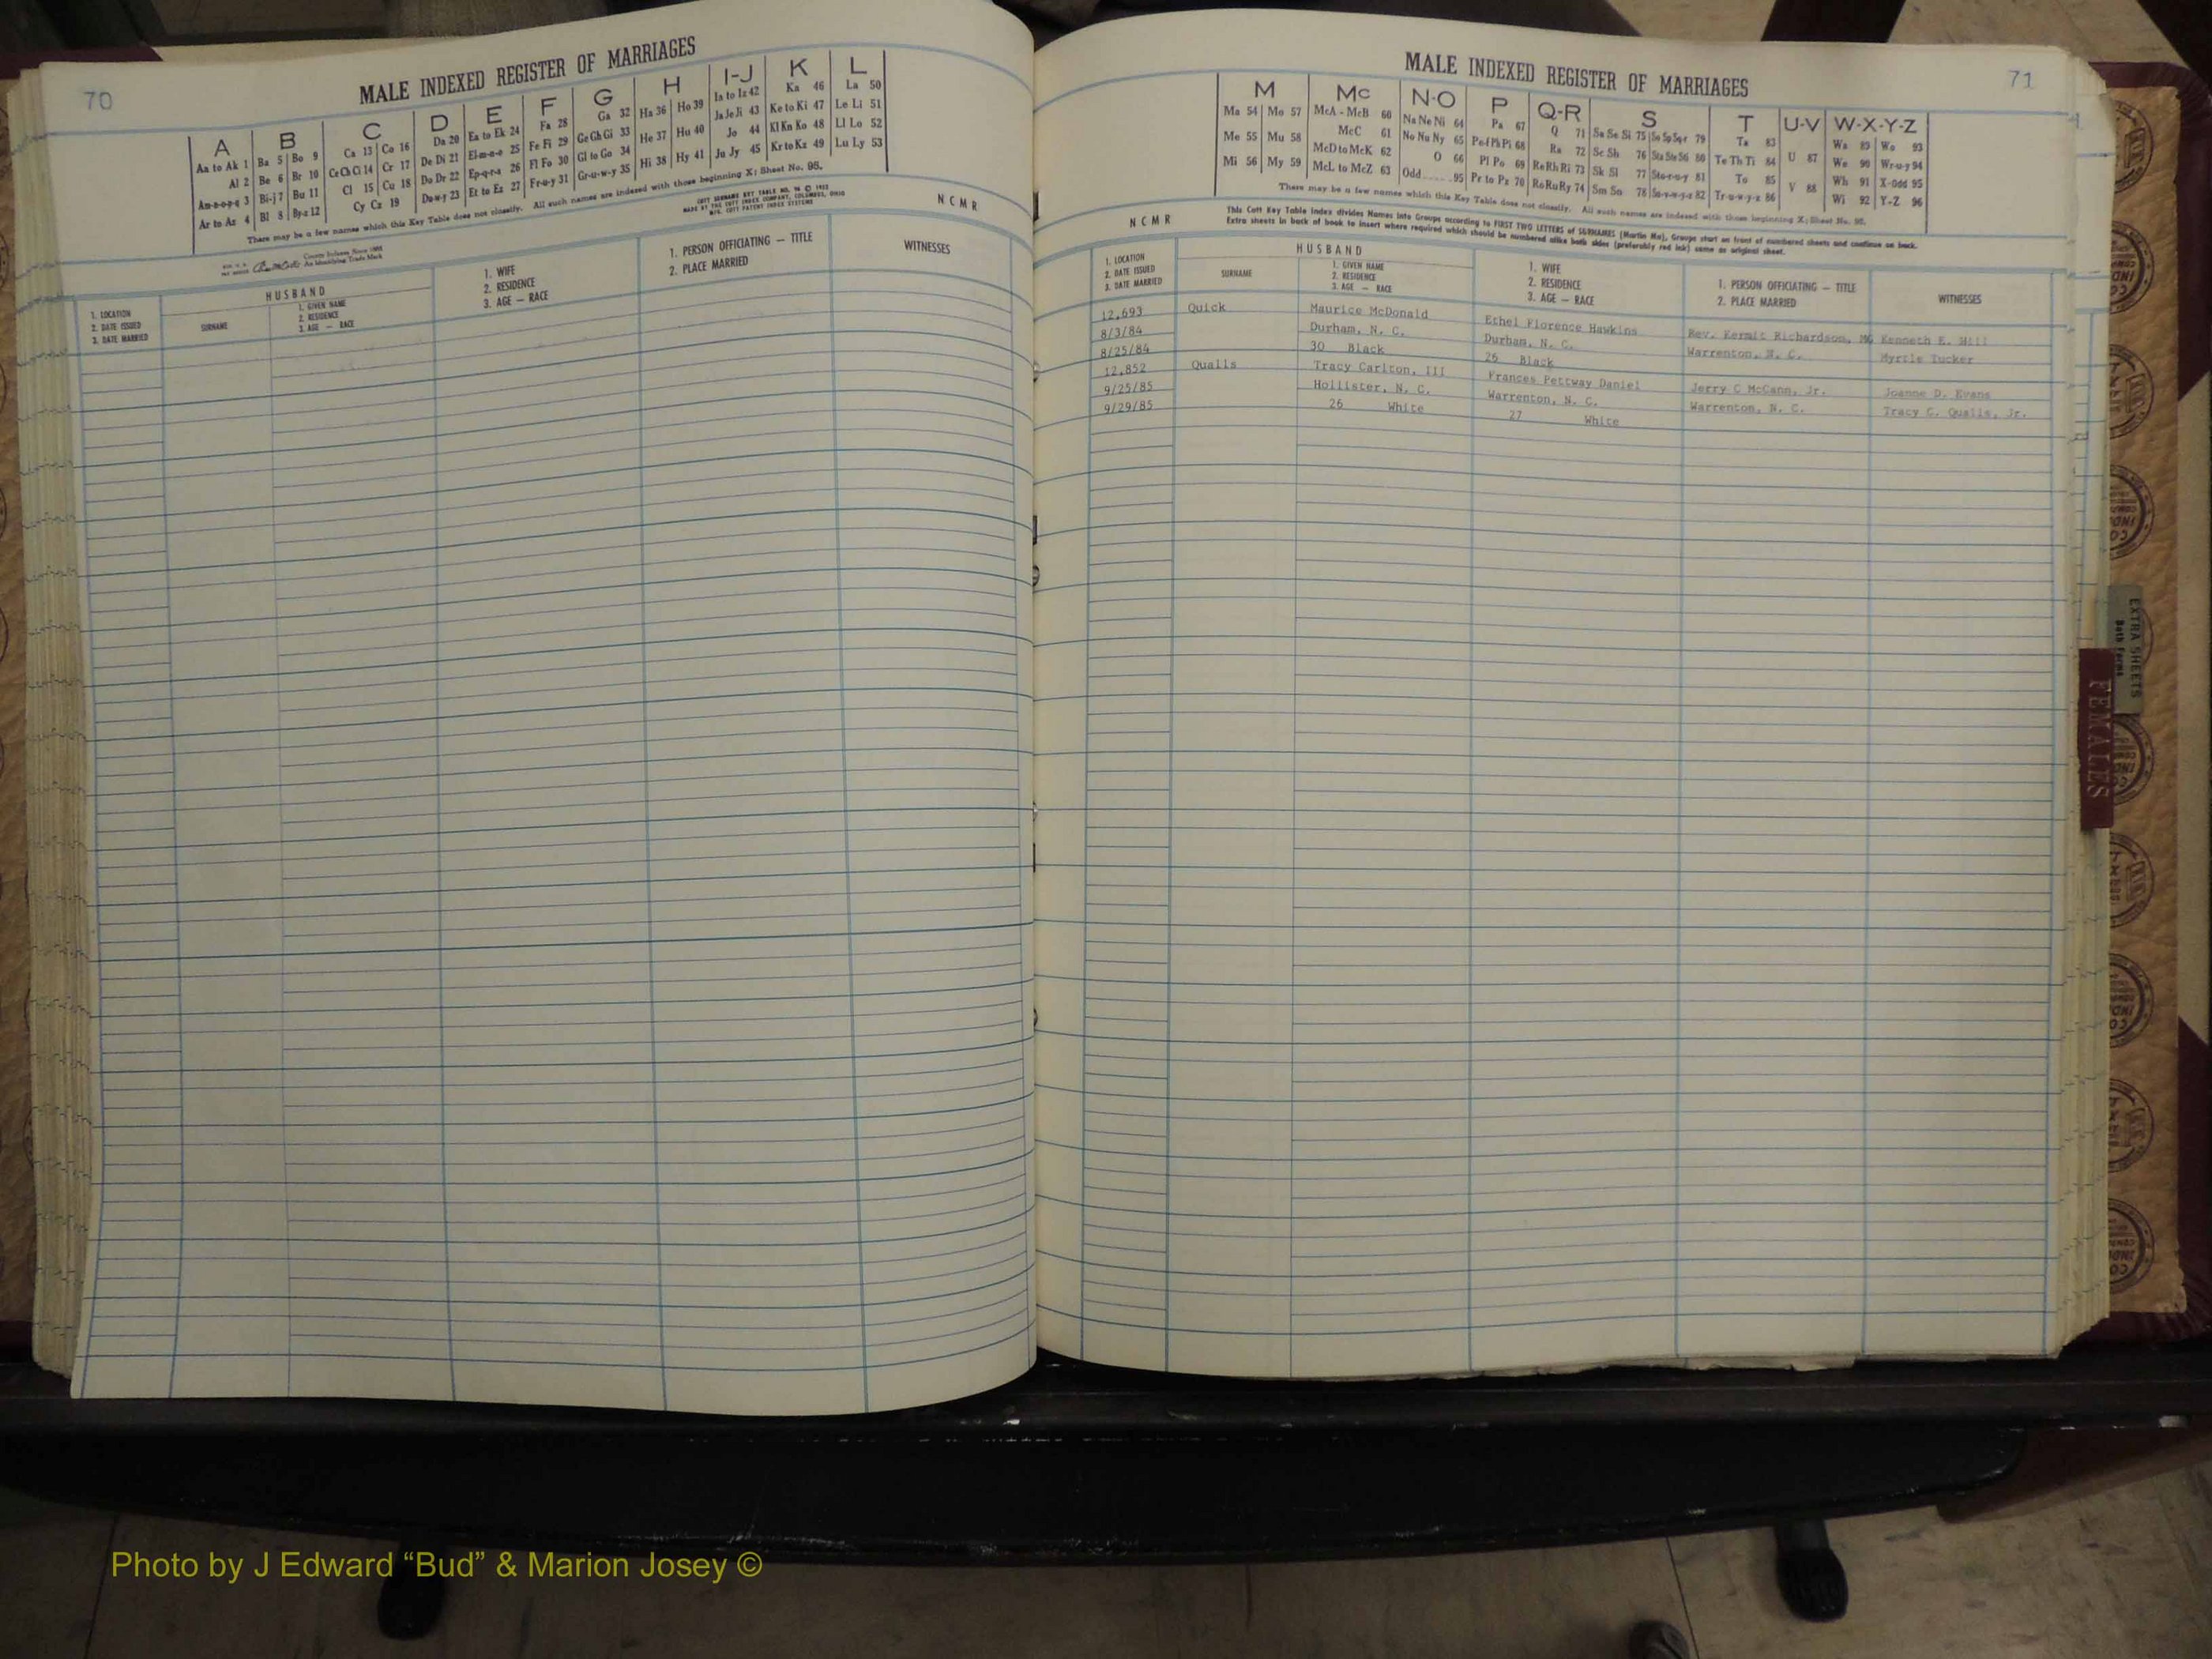 70
MALE INDEXED REGISTER OF MARRIAGES
A B C D E F G H I-J K L
Aa to Ak 1 Ba 5 Bo 9 Ca 13 Co 16 Da 20 Ea to Ek 24 Fa 28 Ga 32 Ha 36 Ho 39 Ia to Iz 42 Ka 46 La 50
Al 2 Be 6 Br 10 Ce Ch Ci 14 Cr 17 De Di 21 El-m-n-o 25 Fe Fi 29 Ge Gh Gi 33 He 37 Hu 40 Ja Je Ji 43 Ke to Ki 47 Le Li 51
Am-n-o-p-q 3 Bi-j 7 Bu 11 Cl 15 Cu 18 Do Dr 22 Ep-q-r-s 26 Fl Fo 30 Gl to Go 34 Hi 38 Hy 41 Jo 44 Kl Kn Ko 48 Ll Lo 52
Ar to Az 4 Bl 8 By-z 12 Cy Cz 19 Du-w-y 23 Et to Ez 27 Fr-u-y 31 Gr-u-w-y 35 Ju Jy 45 Kr to Kz 49 Lu Ly 53
There may be a few names which this Key Table does not classify. All such names are indexed with those beginning X; Sheet No. 95.
COTT SURNAME KEY TABLE NO.
MADE BY THE COTT INDEX COMPANY, COLUMBUS, OHIO
MFG. COTT PATENT INDEX SYSTEMS
N C M R
County Indexes Since 1888
An Identifying Trade Mark
1. LOCATION
2. DATE ISSUED
3. DATE MARRIED
HUSBAND
SURNAME
1. GIVEN NAME
2. RESIDENCE
3. AGE — RACE
1. WIFE
2. RESIDENCE
3. AGE — RACE
1. PERSON OFFICIATING — TITLE
2. PLACE MARRIED
WITNESSES
71
MALE INDEXED REGISTER OF MARRIAGES
M Mc N-O P Q-R S T U-V W-X-Y-Z
Ma 54 Mo 57 McA - McB 60 Na Ne Ni 64 Pa 67 Q 71 Sa Se Si 75 So Sp Sq-r 79 Ta 83 Wa 89 Wo 93
Me 55 Mu 58 McC 61 No Nu Ny 65 Pe-f Ph Pi 68 Ra 72 Sc Sh 76 Sta Ste Sti 80 Te Th Ti 84 U 87 We 90 Wr-u-y 94
Mi 56 My 59 McD to McK 62 O 66 Pl Po 69 Re Rh Ri 73 Sk Sl 77 Sto-r-u-y 81 To 85 V 88 Wh 91 X-Odd 95
McL to McZ 63 Odd 95 Pr to Pz 70 Ro Ru Ry 74 Sm Sn 78 Su-v-w-y-z 82 Tr-u-w-y-z 86 Wi 92 Y-Z 96
There may be a few names which this Key Table does not classify. All such names are indexed with those beginning X; Sheet No. 95.
N C M R
This Cott Key Table Index divides Names into Groups according to FIRST TWO LETTERS of SURNAMES (Martin Ma), Groups start on front of numbered sheets and continue on back.
Extra sheets in back of book to insert where required which should be numbered alike both sides (preferably red ink) same as original sheet.
1. LOCATION
2. DATE ISSUED
3. DATE MARRIED
HUSBAND
SURNAME
1. GIVEN NAME
2. RESIDENCE
3. AGE — RACE
1. WIFE
2. RESIDENCE
3. AGE — RACE
1. PERSON OFFICIATING — TITLE
2. PLACE MARRIED
WITNESSES
12,693 Quick Maurice McDonald Ethel Florence Hawkins Rev. Kermit Richardson, MG Kenneth E. Hill
8/3/84 Durham, N. C. Durham, N. C. Warrenton, N. C. Myrtle Tucker
8/25/84 30 Black 26 Black
12,852 Qualls Tracy Carlton, III Frances Pettway Daniel Jerry C McCann, Jr. Joanne D. Evans
9/25/85 Hollister, N. C. Warrenton, N. C. Warrenton, N. C. Tracy C. Qualls, Jr.
9/29/85 26 White 27 White
EXTRA SHEETS
Both Forms
FEMALES
Photo by J Edward “Bud” & Marion Josey ©